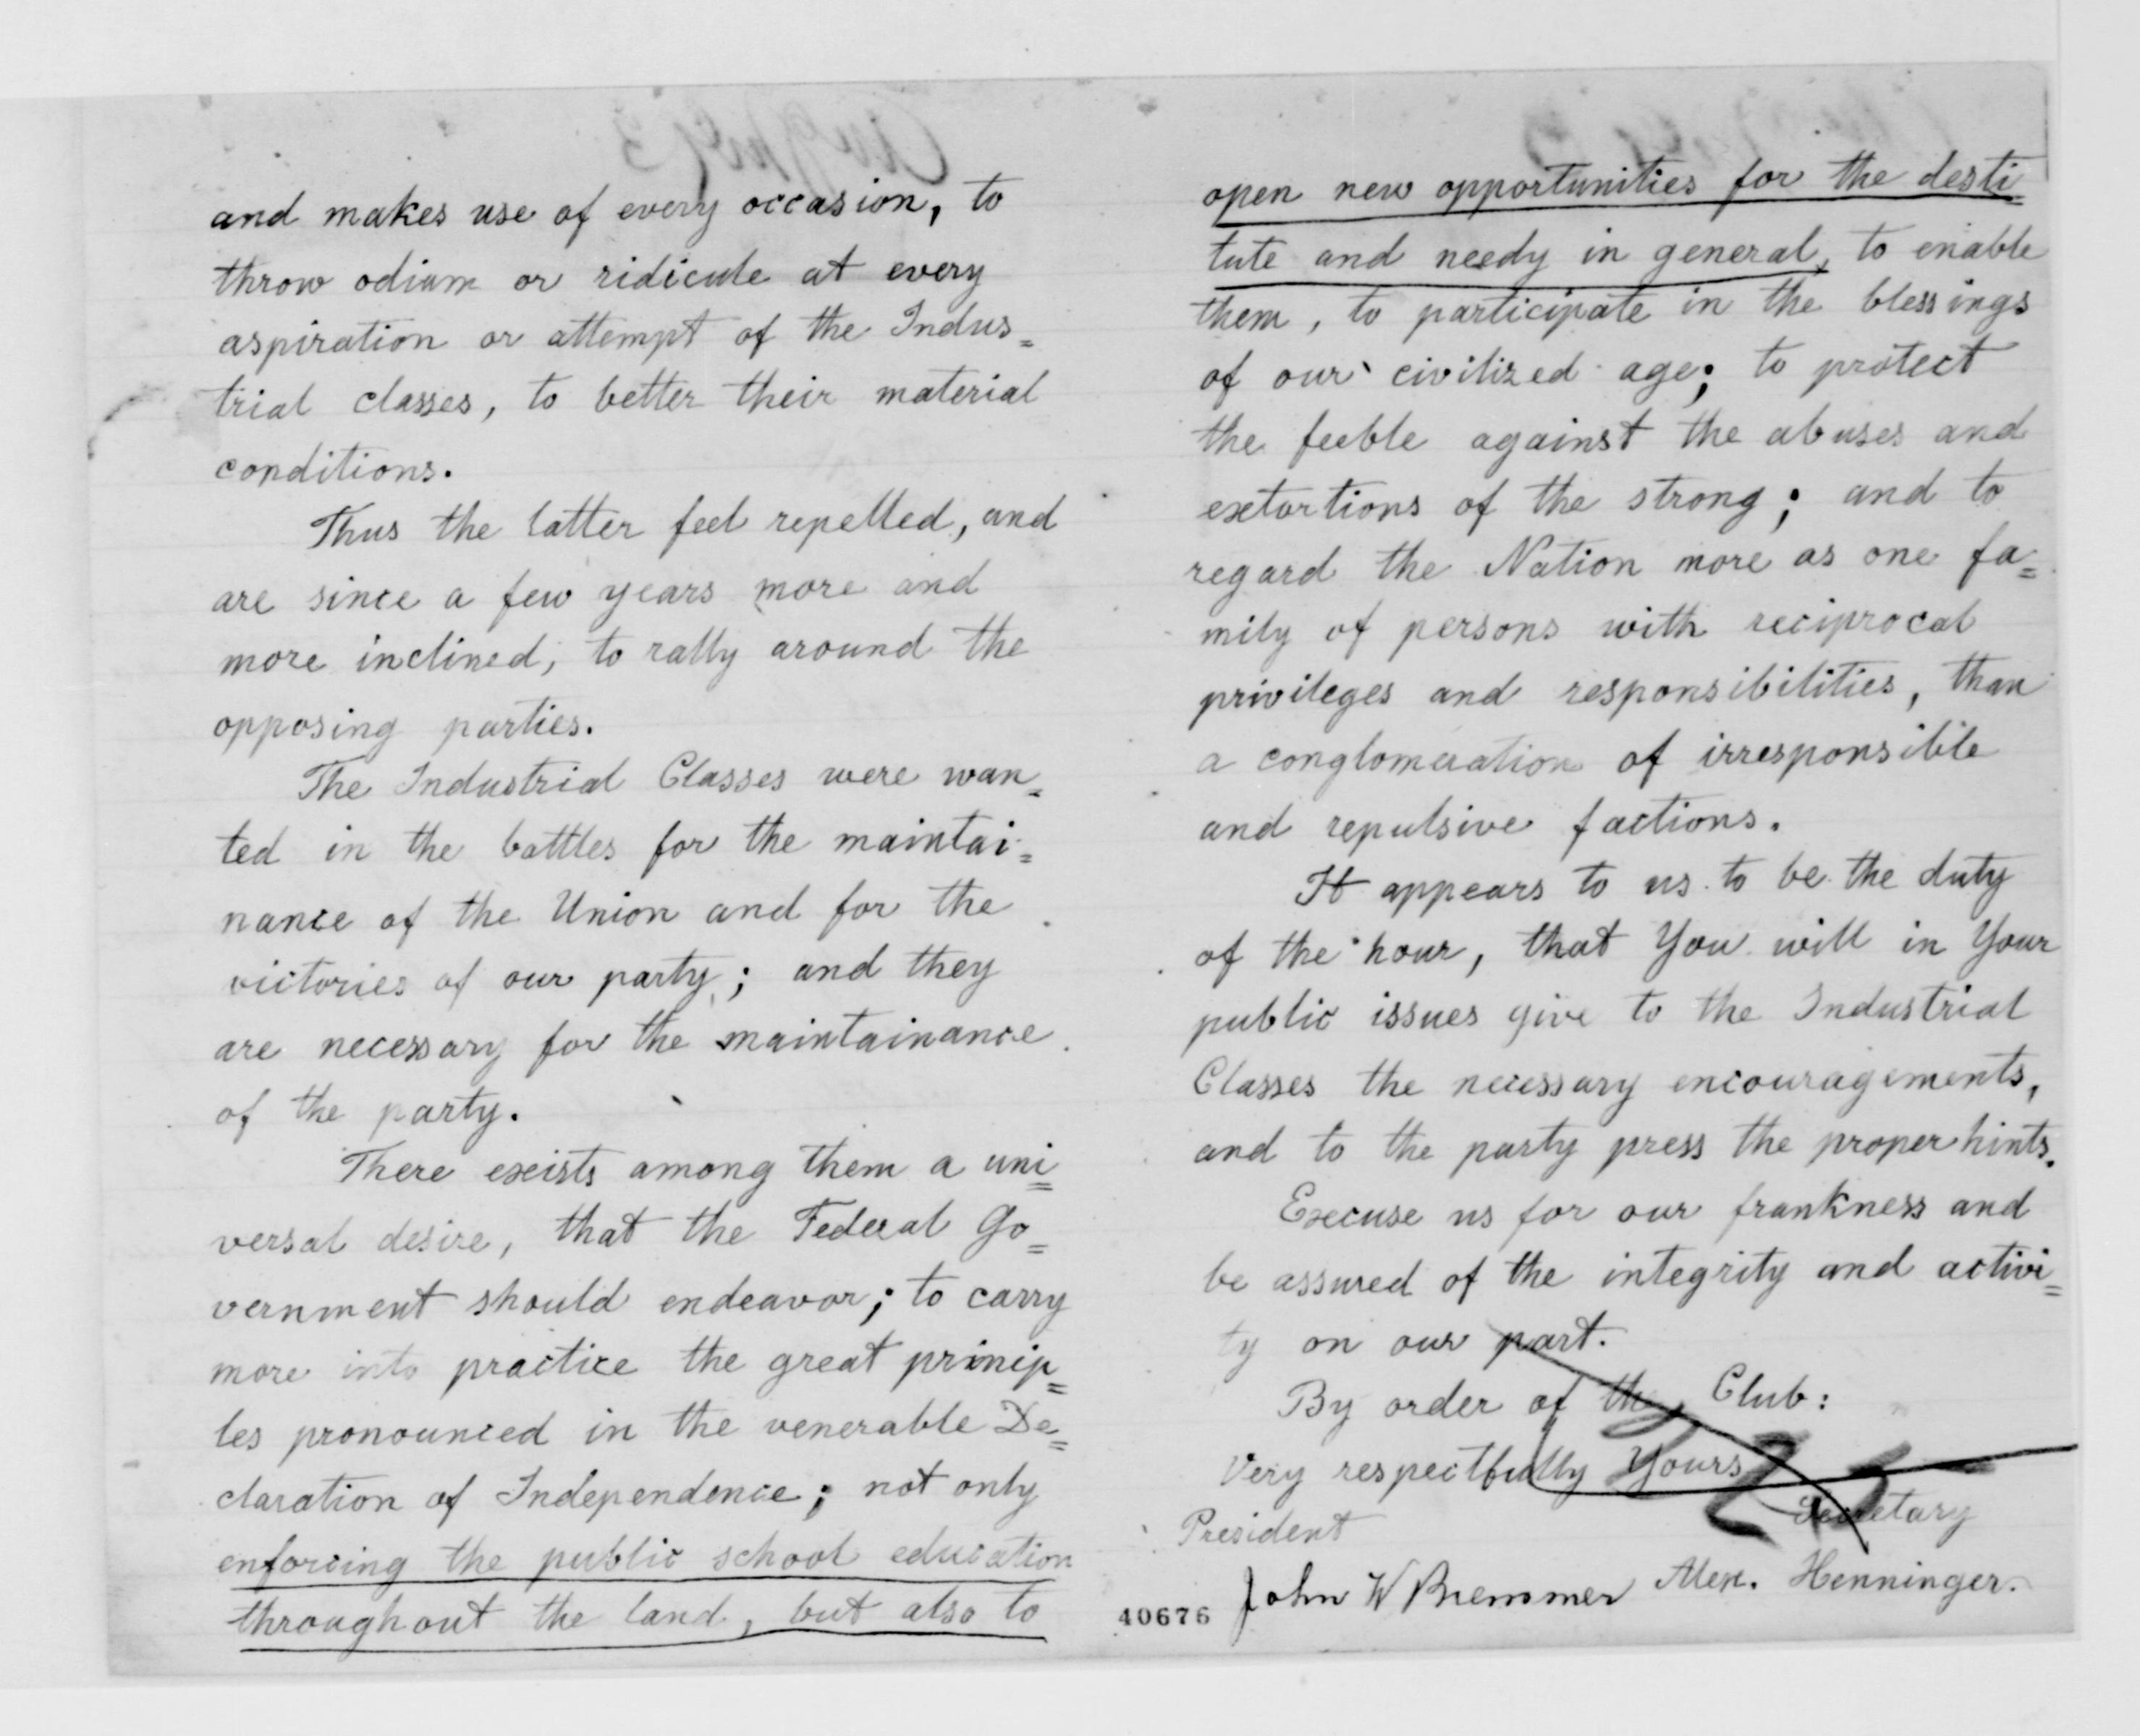 and makes use of every occasion, to
throw odium or ridicule at every
aspiration or attempt of the Indus=
trial classes, to better their material
conditions.
Thus the latter feel repelled, and
are since a few years more and
more inclined, to rally around the
opposing parties.
The Industrial Classes were wan=
ted in the battles for the maintai=
nance of the Union and for the
victories of our party; and they
are necessary for the maintainance
of the party.
There exists among them a uni=
versal desire, that the Federal Go=
vernment should endeavor; to carry
more into practice the great prinip=
les pronounced in the venerable De=
claration of Independence; not only
enforcing the public school education
throughout the land, but also to
open new opportunities for the desti=
tute and needy in general, to enable
them, to participate in the blessings
of our civilized age; to protect
the feeble against the abuses and
extortions of the strong; and to
regard the Nation more as one fa=
mily of persons with reciprocal
privileges and responsibilities, than
a conglomeration of irresponsible
and repulsive factions.
It appears to us to be the duty
of the hour, that You will in Your
public issues give to the Industrial
Classes the necessary encouragements,
and to the party press the proper hints.
Excuse us for our frankness and
be assured of the integrity and activi=
ty on our part.
By order of the Club:
Very respectfully Yours
President Secretary
John W Bremmer Alex. Henninger.
40676